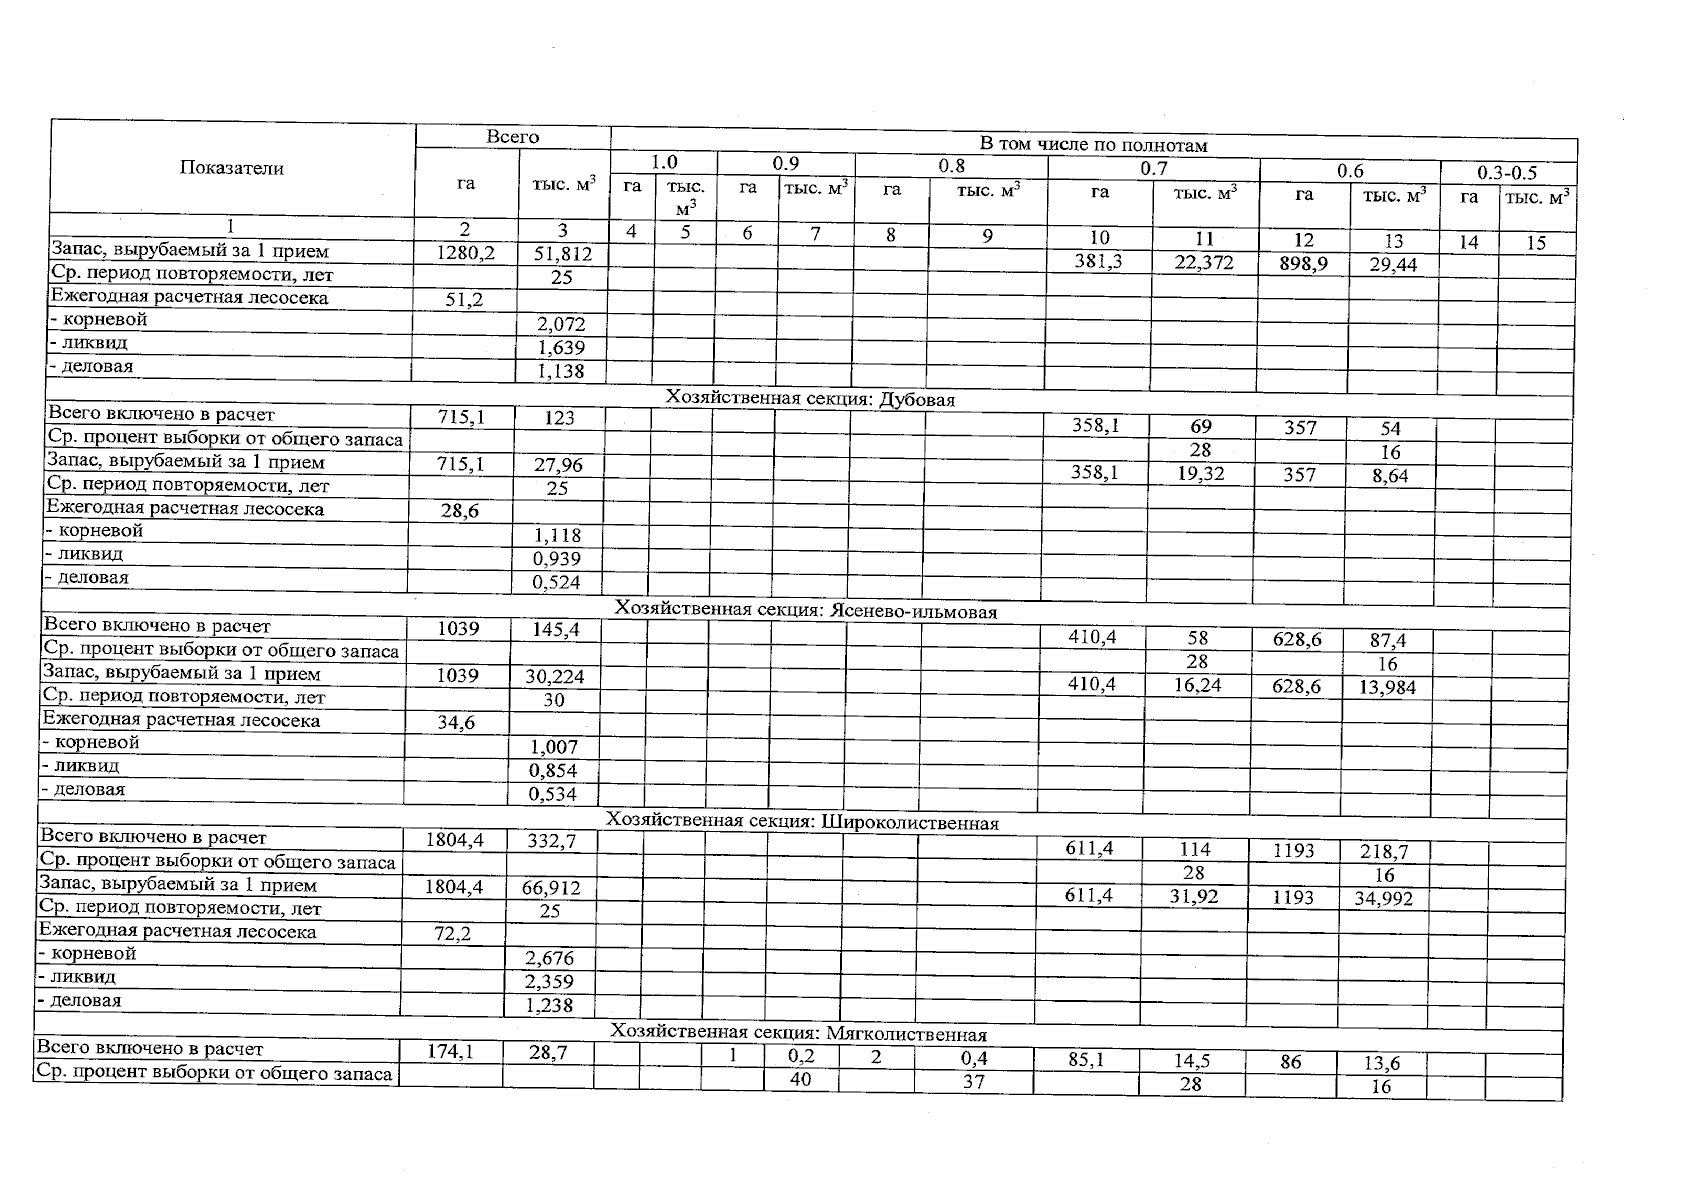 Показатели Всего В том числе по полнотам
1.0 0.9 0.8 0.7 0.6 0.3-0.5
га тыс. м³ га тыс. м³ га тыс. м³ га тыс. м³ га тыс. м³ га тыс. м³ га тыс. м³
1 2 3 4 5 6 7 8 9 10 11 12 13 14 15
Запас, вырубаемый за 1 прием 1280,2 51,812 381,3 22,372 898,9 29,44
Ср. период повторяемости, лет 25
Ежегодная расчетная лесосека 51,2
- корневой 2,072
- ликвид 1,639
- деловая 1,138
Хозяйственная секция: Дубовая
Всего включено в расчет 715,1 123 358,1 69 357 54
Ср. процент выборки от общего запаса 28 16
Запас, вырубаемый за 1 прием 715,1 27,96 358,1 19,32 357 8,64
Ср. период повторяемости, лет 25
Ежегодная расчетная лесосека 28,6
- корневой 1,118
- ликвид 0,939
- деловая 0,524
Хозяйственная секция: Ясенево-ильмовая
Всего включено в расчет 1039 145,4 410,4 58 628,6 87,4
Ср. процент выборки от общего запаса 28 16
Запас, вырубаемый за 1 прием 1039 30,224 410,4 16,24 628,6 13,984
Ср. период повторяемости, лет 30
Ежегодная расчетная лесосека 34,6
- корневой 1,007
- ликвид 0,854
- деловая 0,534
Хозяйственная секция: Широколиственная
Всего включено в расчет 1804,4 332,7 611,4 114 1193 218,7
Ср. процент выборки от общего запаса 28 16
Запас, вырубаемый за 1 прием 1804,4 66,912 611,4 31,92 1193 34,992
Ср. период повторяемости, лет 25
Ежегодная расчетная лесосека 72,2
- корневой 2,676
- ликвид 2,359
- деловая 1,238
Хозяйственная секция: Мягколиственная
Всего включено в расчет 174,1 28,7 1 0,2 2 0,4 85,1 14,5 86 13,6
Ср. процент выборки от общего запаса 40 37 28 16